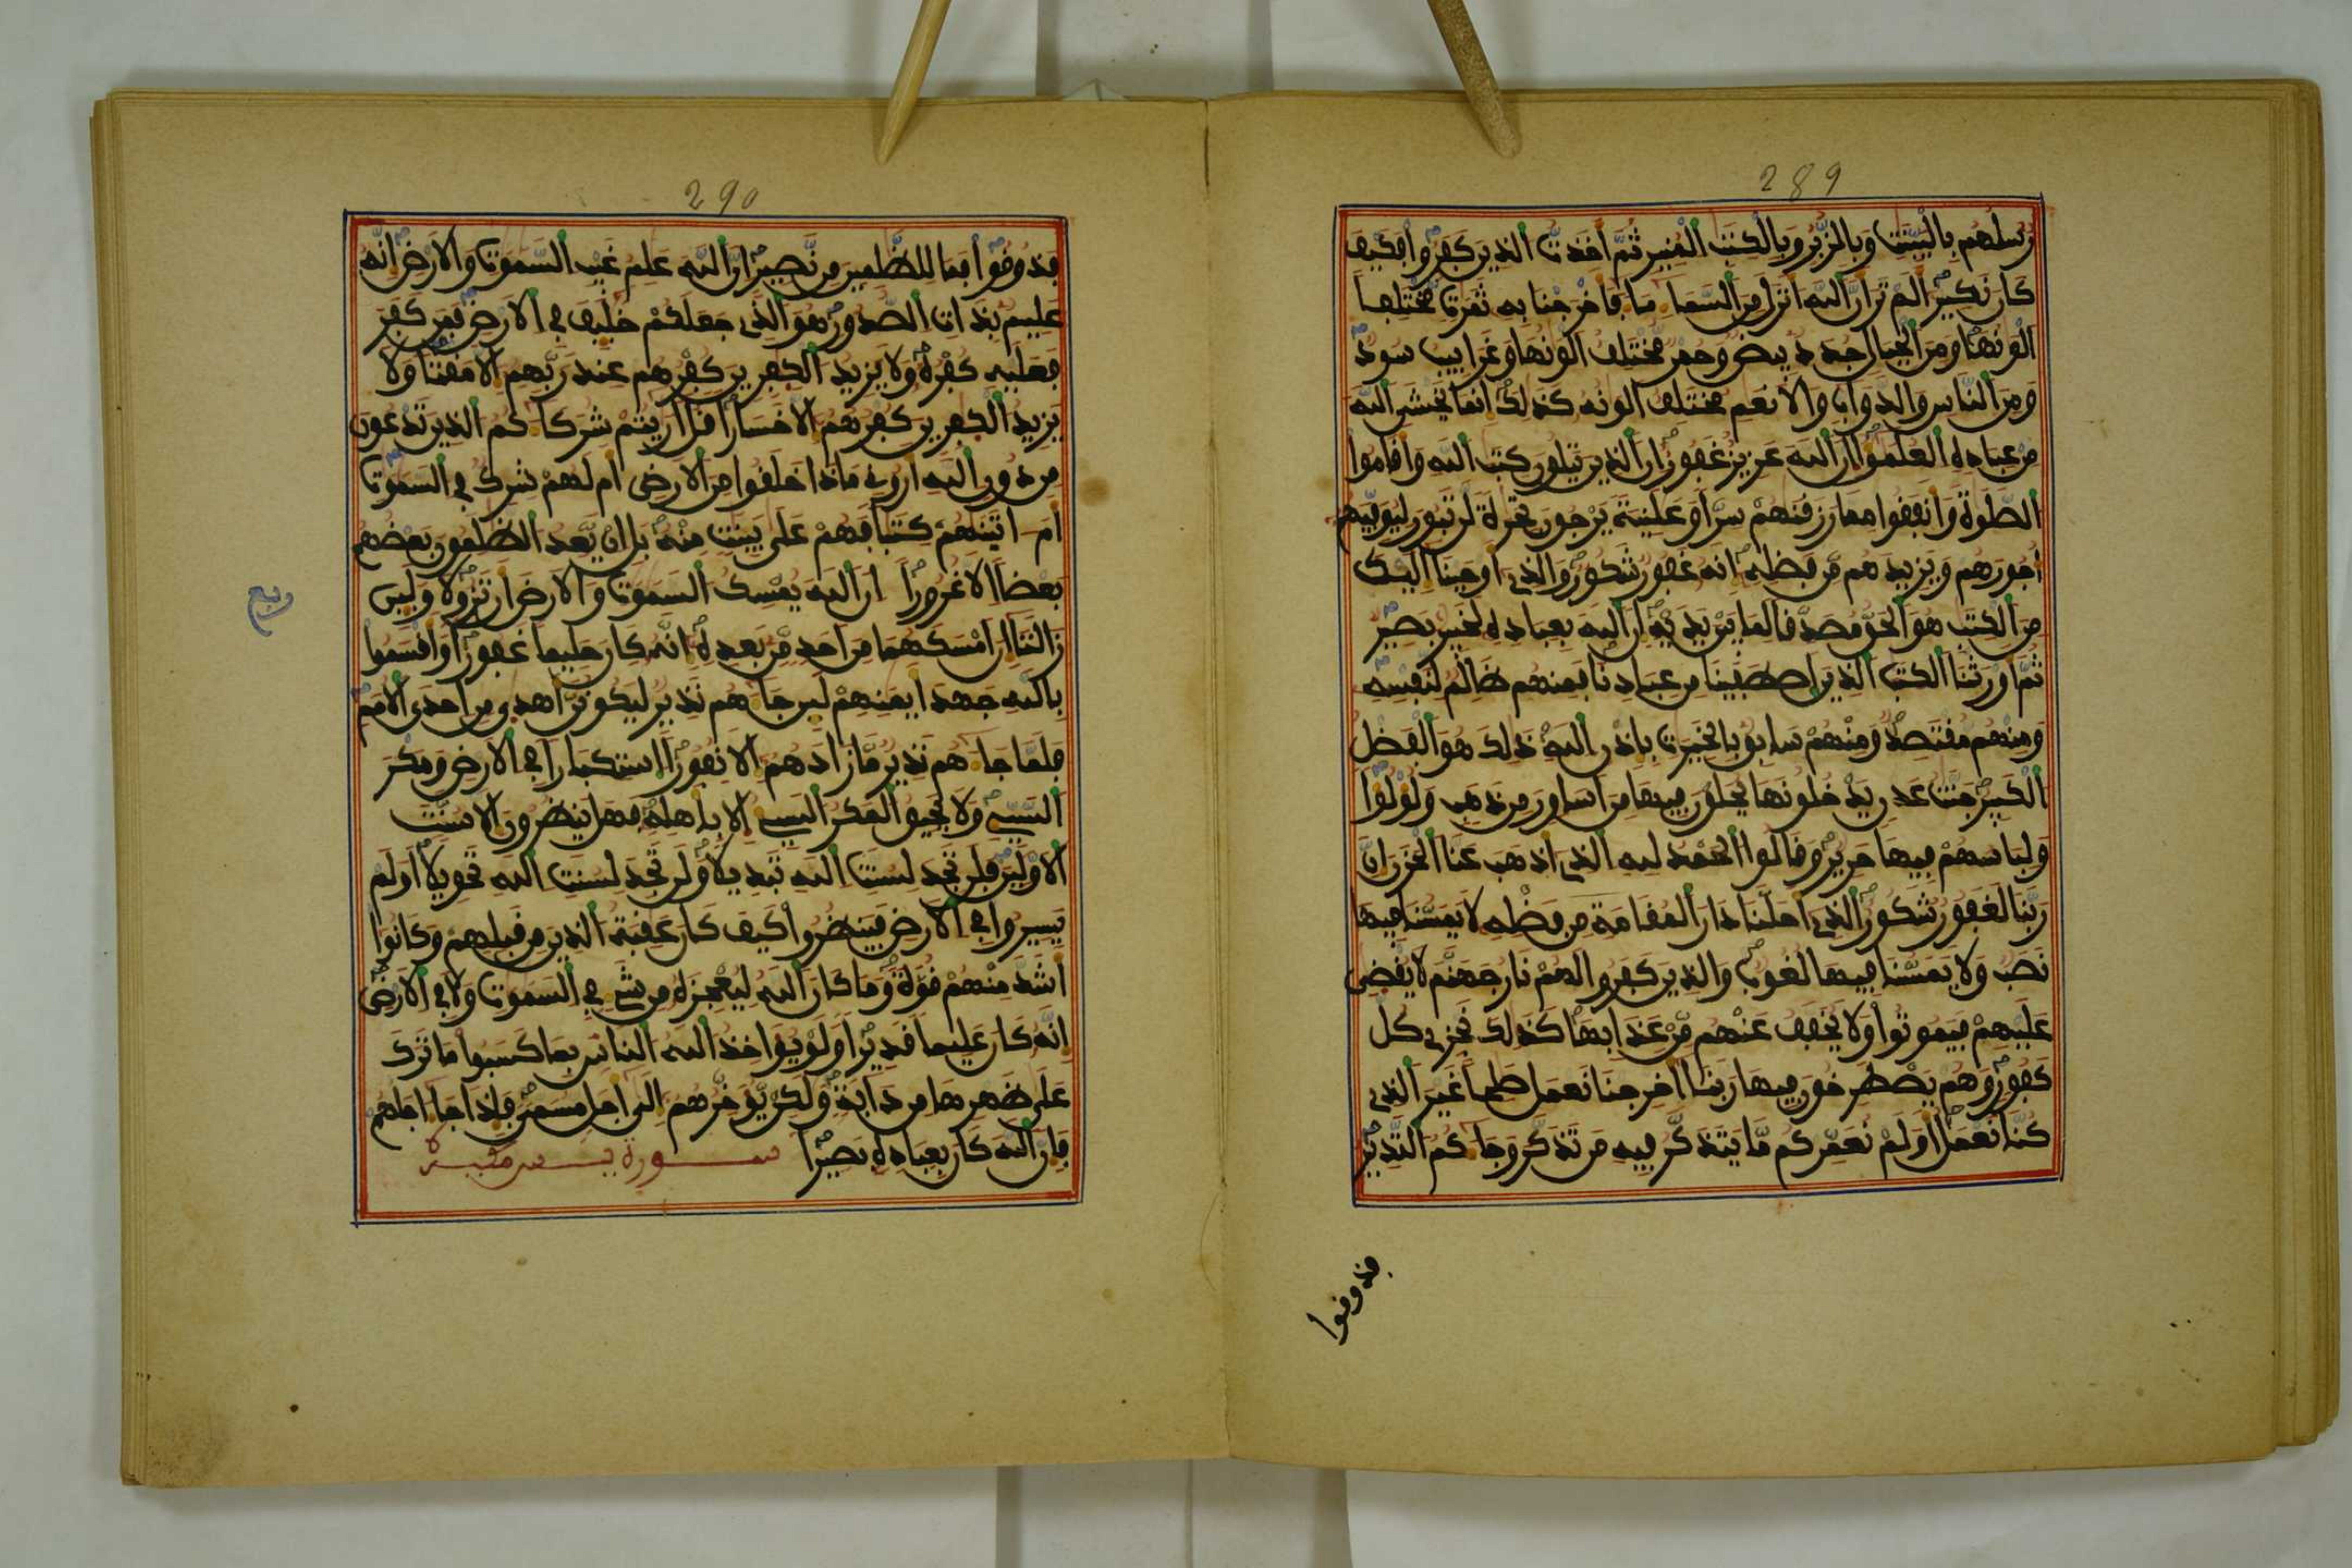 289
رسلهم بالبينت وبالزبر وبالكتب المنير ثم اخذت الذين كفروا فكيف
كان نكير الم تر ان الله انزل من السما ما فاخرجنا به ثمرت مختلفا
الونها ومن الجبال جدد بيض وحمر مختلف الونها وغرابيب سود
ومن الناس والدواب والانعم مختلف الونه كذلك انما يخشى الله
من عباده العلموا ان الله عزيز غفور ان الذين يتلون كتب الله واقاموا
الصلوة وانفقوا مما رزقنهم سرا وعلنية يرجون تجرة لن تبور ليوفيهم
اجورهم ويزيدهم من فضله انه غفور شكور والذي اوحينا اليك
من الكتب هو الحق مصدقا لما بين يديه ان الله بعباده لخبير بصير
ثم اورثنا الكتب الذين اصطفينا من عبادنا فمنهم ظالم لنفسه
ومنهم مقتصد ومنهم سابق بالخيرت باذن الله ذلك هو الفضل
الكبير جنت عدن يدخلونها يحلون فيها من اساور من ذهب ولؤلؤا
ولباسهم فيها حرير وقالوا الحمد لله الذي اذهب عنا الحزن ان
ربنا لغفور شكور الذي احلنا دار المقامة من فضله لا يمسنا فيها
نصب ولا يمسنا فيها لغوب والذين كفروا لهم نار جهنم لا يقضى
عليهم فيموتوا ولا يخفف عنهم من عذابها كذلك نجزي كل
كفور وهم يصطرخون فيها ربنا اخرجنا نعمل صلحا غير الذي
كنا نعمل اولم نعمركم ما يتذكر فيه من تذكر وجاكم النذير
فذوقوا
290
فذوقوا فما للظلمين من نصير ان الله علم غيب السموت والارض انه
عليم بذات الصدور هو الذي جعلكم خليف في الارض فمن كفر
فعليه كفره ولا يزيد الكفرين كفرهم عند ربهم الا مقتا ولا
يزيد الكفرين كفرهم الا خسارا قل اريتم شركاكم الذين تدعون
من دون الله اروني ماذا خلقوا من الارض ام لهم شرك في السموت
ام اتينهم كتبا فهم على بينت منه بل ان يعد الظلمون بعضهم
بعضا الا غرورا ان الله يمسك السموت والارض ان تزولا ولين
زالتا ان امسكهما من احد من بعده انه كان حليما غفورا واقسموا
بالله جهد ايمنهم لين جاهم نذير ليكونن اهدى من احدى الامم
فلما جاهم نذير ما زادهم الا نفورا استكبارا في الارض ومكر
السيي ولا يحيق المكر السيي الا باهله فهل ينظرون الا سنت
الاولين فلن تجد لسنت الله تبديلا ولن تجد لسنت الله تحويلا اولم
يسيروا في الارض فينظروا كيف كان عقبة الذين من قبلهم وكانوا
اشد منهم قوة وما كان الله ليعجزه من شي في السموت ولا في الارض
انه كان عليما قديرا ولو يواخذ الله الناس بما كسبوا ما ترك
على ظهرها من دابة ولكن يوخرهم الى اجل مسمى فاذا جا اجلهم
فان الله كان بعباده بصيرا سورة يس مكية
ربع